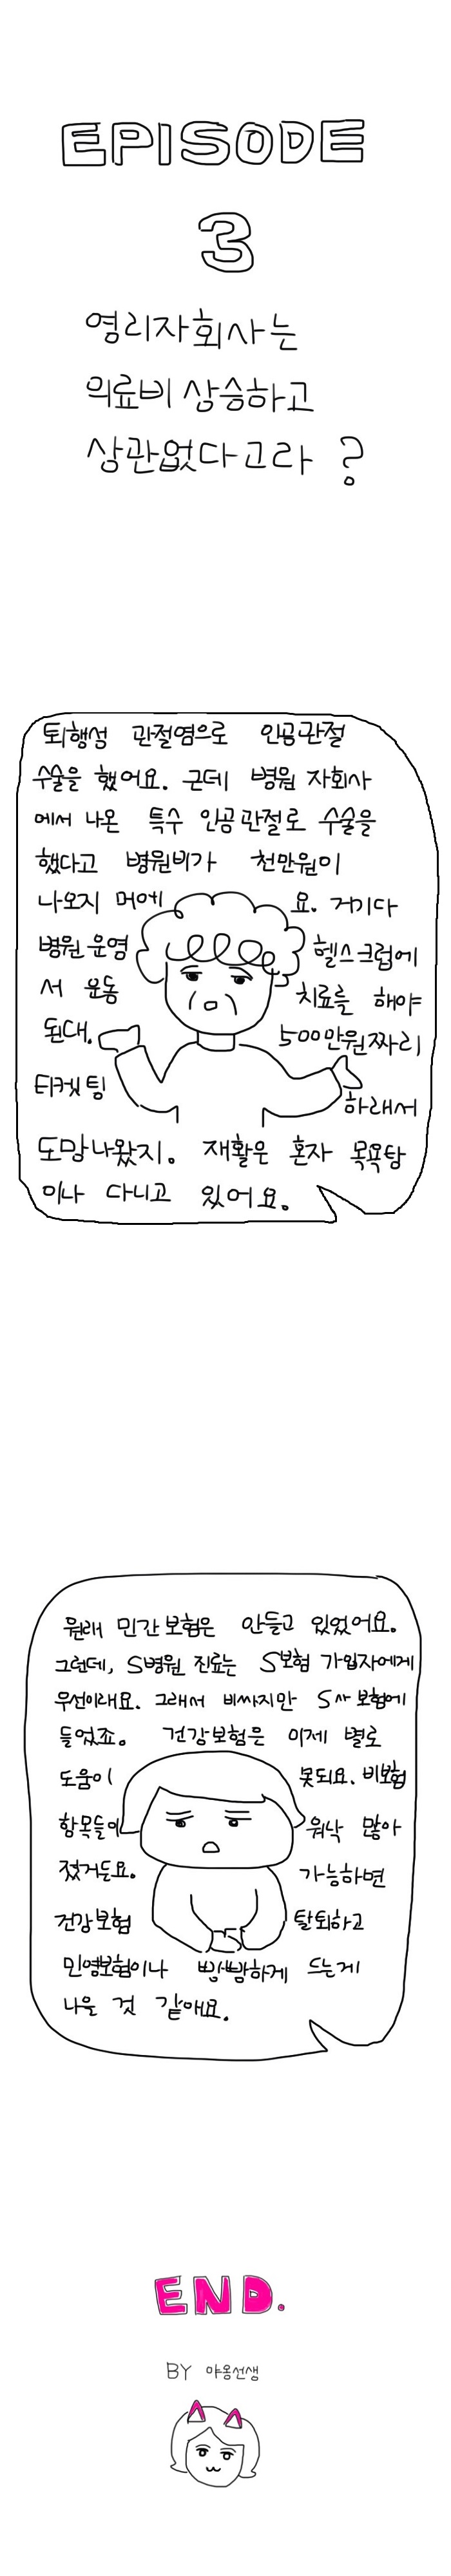 EPISODE
3
영리자회사는
의료비 상승하고
상관없다고라 ?
퇴행성 관절염으로 인공관절
수술을 했어요. 근데 병원 자회사
에서 나온 특수 인공관절로 수술을
했다고 병원비가 천만원이
나오지 머에 요. 거기다
병원 운영 헬스크럽에
서 운동 치료를 해야
된대. 500만원짜리
티케팅 하래서
도망나왔지. 재활은 혼자 목욕탕
이나 다니고 있어요.
원래 민간보험은 안들고 있었어요.
그런데, S병원 진료는 S보험 가입자에게
우선이래요. 그래서 비싸지만 S사 보험에
들었죠. 건강보험은 이제 별로
도움이 못되요. 비보험
항목들이 워낙 많아
졌거든요. 가능하면
건강보험 탈퇴하고
민영보험이나 빵빵하게 드는게
나을 것 같애요.
END.
BY 야옹선생